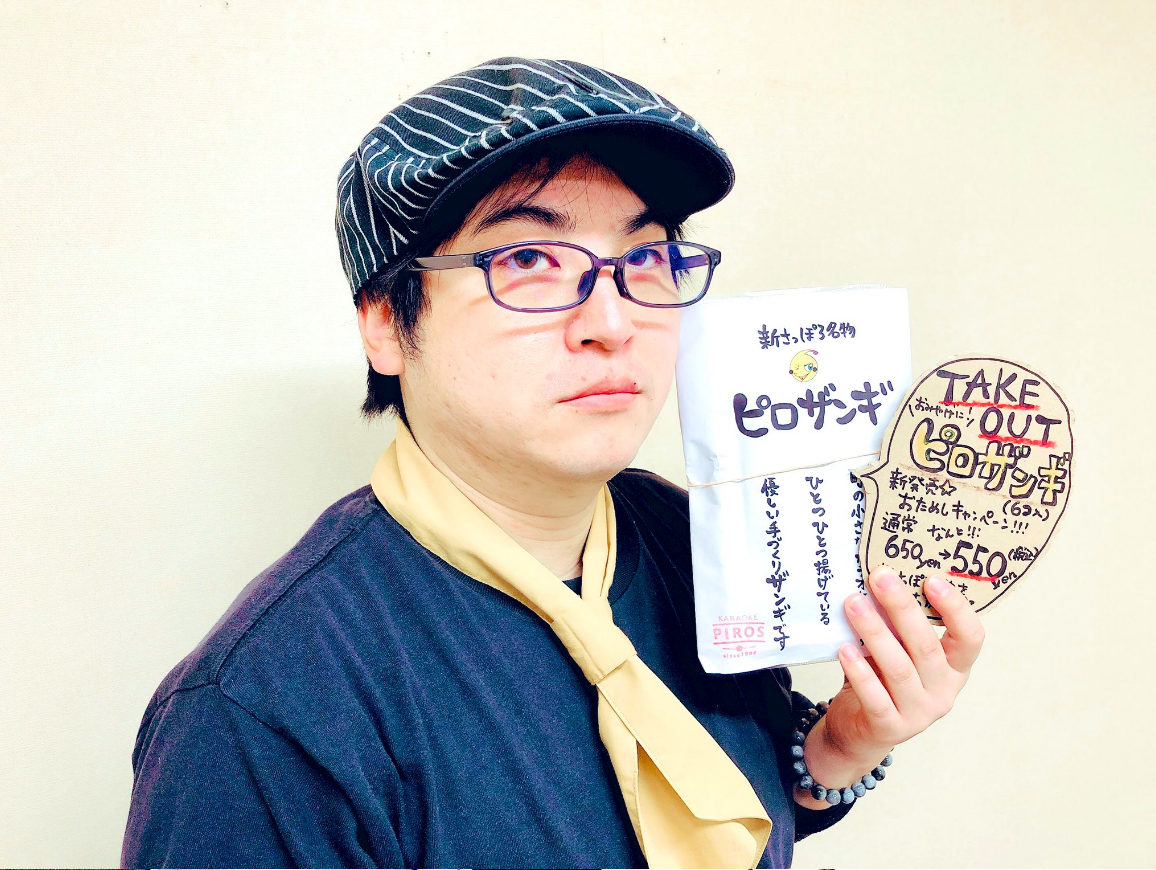 新さっぽろ名物
ピロザンギ
ひとつひとつ揚げている
優しい手づくりザンギです
KARAOKE
PIROS
since1999
TAKE
OUT
おみやげに!
ピロザンギ
(6コ入)
新発売☆
おためしキャンペーン!!!
通常 なんと!!
650yen→550yen(税込)